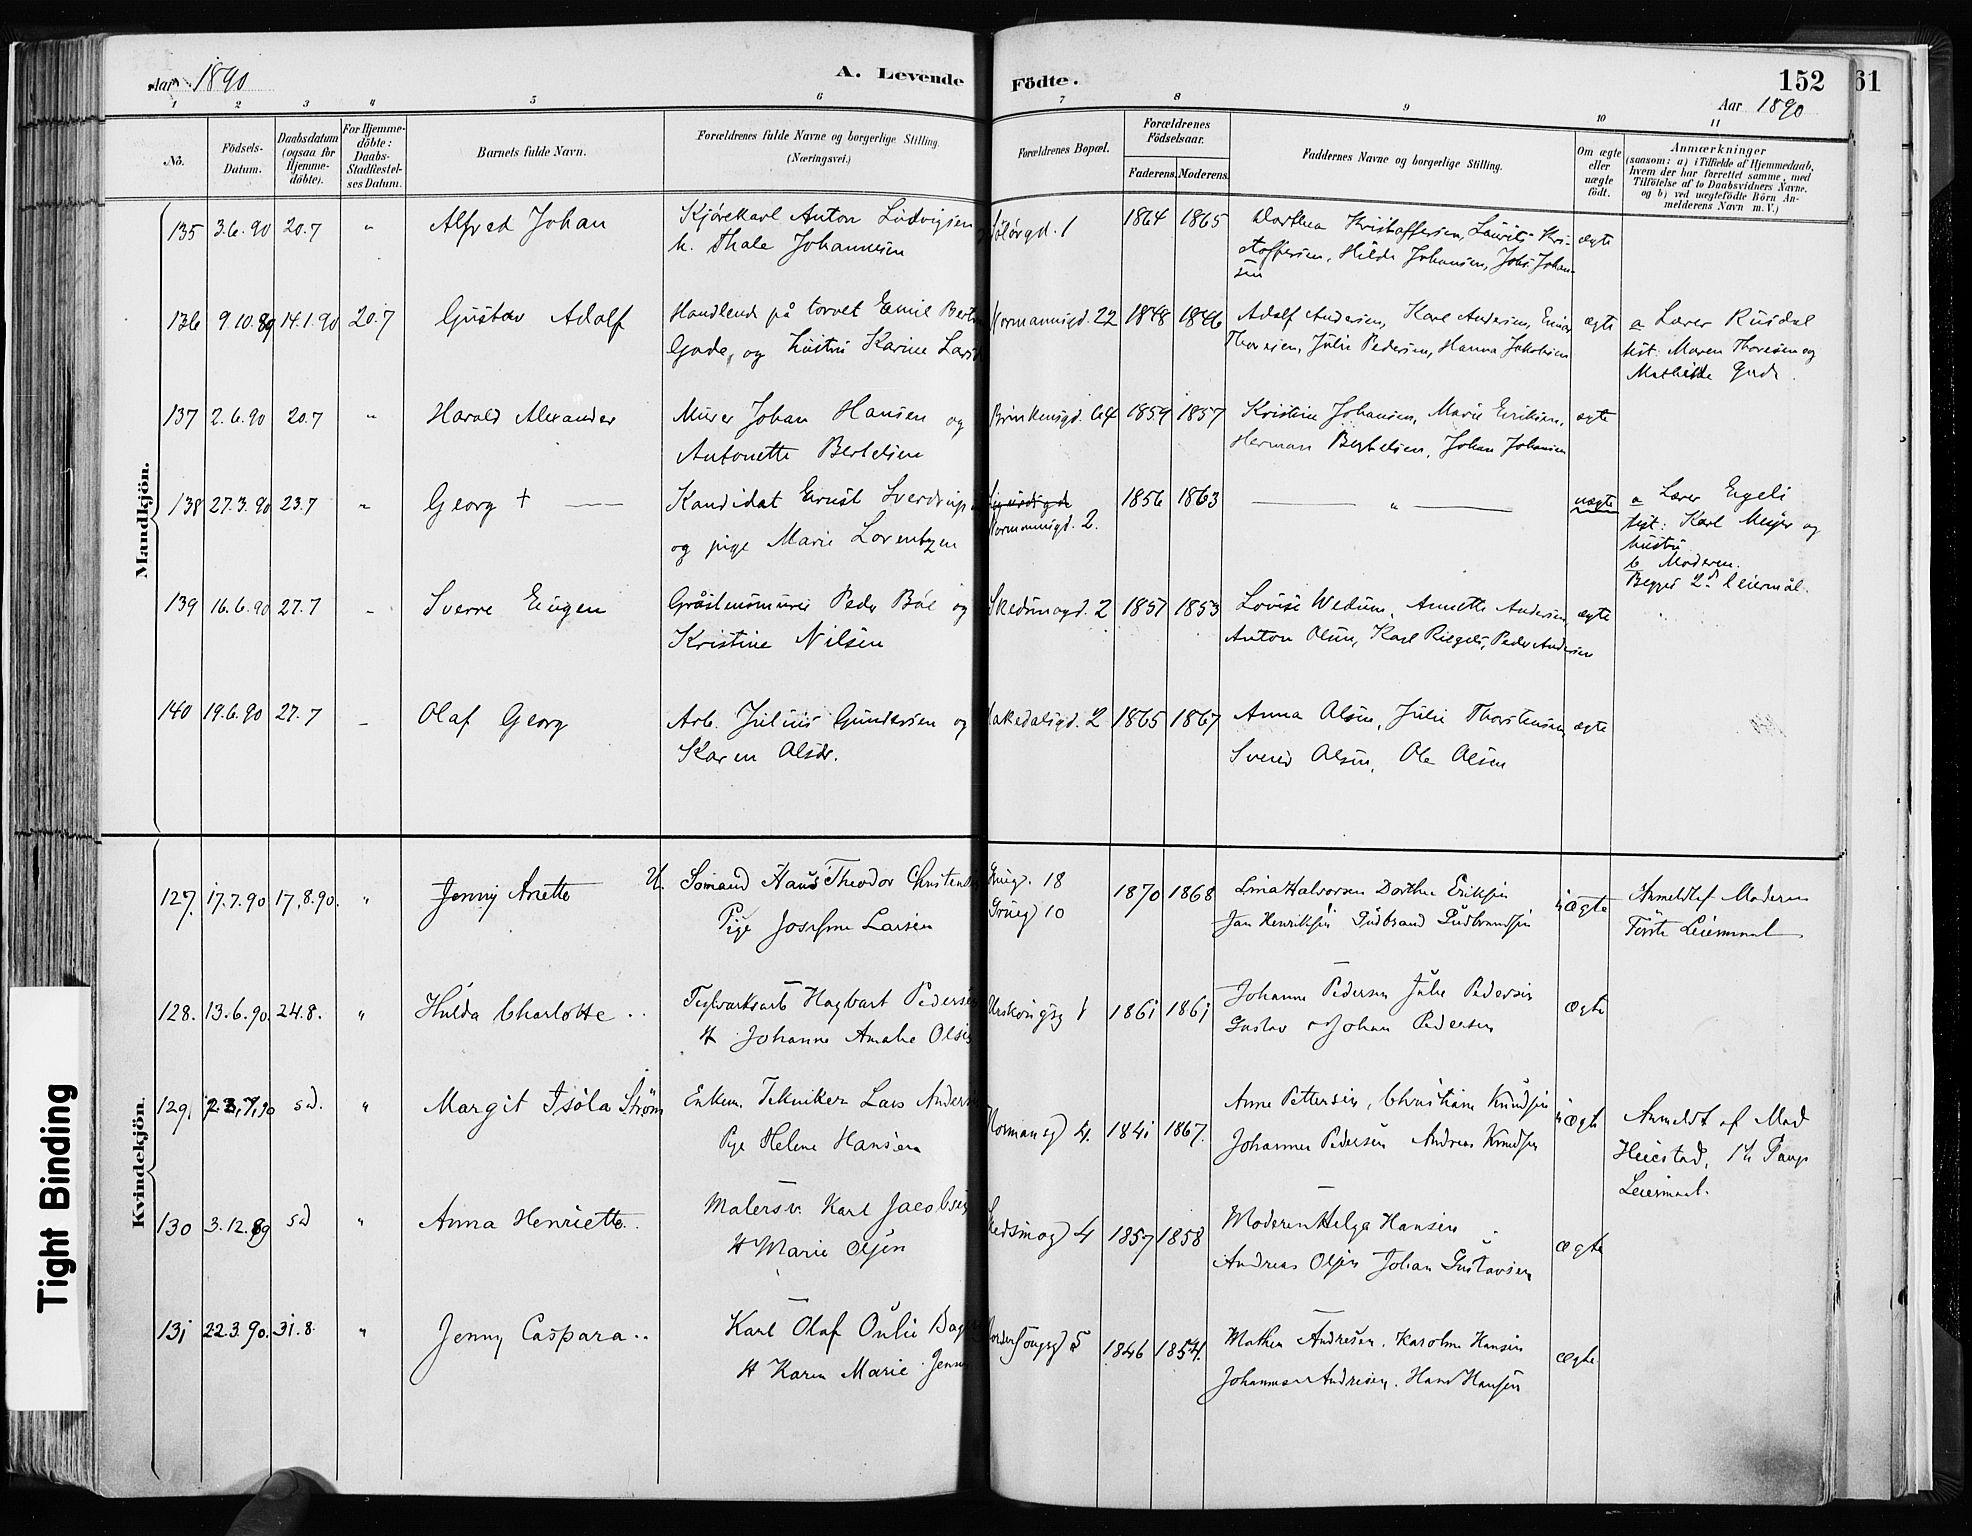 Aar 1890
A. Levende
Födte.
152
61
Aar 1890
1 2 3 4 5 6 7 8 9 10 11
No.
Födsels-Datum.
Daabsdatum (ogsaa for Hjemme-döbte).
For Hjemme-döbte: Daabs-Stadfæstel-ses Datum.
Barnets fulde Navn.
Forældrenes fulde Navne og borgerlige Stilling. (Næringsvei.)
Forældrenes Bopæl.
Forældrenes Födselsaar.
Faderens. Moderens.
Faddernes Navne og borgerlige Stilling.
Om ægte eller uægte födt.
Anmærkninger
(saasom: a) i Tilfælde af Hjemmedaab,
hvem der har forrettet samme, med
Tilföielse af to Daabsvidners Navne.
og b) ved uægtefödte Börn An-
melderens Navn m. V.)
Mandkjön.
135 3.6.90 20.7 " Alfred Johan Kjörekarl Anton Ludvigsen 1 1864 1865 Dorthea Kristoffersen, Laurits Kri- ægte
h. Thale Johannesen stoffersen, Hilda Johansen, Johs. Johan-
sen
136 9.10.89 14.1.90 20.7 Gustav Adolf Handlende på torvet Emil Normannsgd. 22 1848 1846 Adolf Andersen, Karl Andersen, Einar ægte a Lærer Rusdal
Gade, og hustru Karine Thoresen, Julie Pedersen, Hanna Jakobsen test: Maren Thoresen og
Mathilde Gade.
137 2.6.90 20.7 " Harald Alexander Murer Johan Hansen og 64 1859 1857 Kristine Johansen, Marie Eriksen, ægte
Antonette Bertelsen Herman Bertelsen, Johan Johansen
138 27.3.90 23.7 " Georg + Kandidat Ernst Sverdrup 1856 1863 " uægte a Lærer Engeli
og pige Marie Lorentzen Normannsgd. 2. test: Karl Meyer og
hustru
b Moderen.
Begges 2d leiermål.
139 16.6.90 27.7 " Sverre Eugen Gråstensmurer Peder Böe og Skedsmogd. 2 1857 1853 Lovise Wedum, Annette Andersen ægte
Kristine Nilsen Anton Olsen, Karl Peder Andersen
140 19.6.90 27.7 " Olaf Georg Arb. Julius Gundersen og Hakedalsgd. 2 1865 1867 Anna Olsen, Julie Thorstensen, ægte
Karen Olsdr. Olsen, Ole Olsen
Kvindekjön.
127. 17.7.90 17.8.90. " Jenny Anette U. Sömand Hans Theodor Christensen 18 1870 1868 Lina Halvorsen Dorthe Eriksen uægte Anmeldt af Moderen
Pige Josefine Larsen Grüeg) 10 Jan Henriksen Gudbrand Gudbrandsen Förste Leiermaal
128. 13.6.90. 24.8. " Hulda Charlotte Teglværksarb Hagbart Pedersen 1 1861 1861 Johanne Pedersen Julie Pedersen ægte
H Johanne Amalie Olsen Gustav & Johan Pedersen
129. 23.7.90 sd. " Margit Isöla Ström Enkem. Tekniker Lars Andersen Normansg) 4. 1841 1867. Anne Pettersen, Christiane Knudsen uægte Anmeldt af Mad
Pige Helene Hansen Johannes Pedersen Andreas Knudsen
Leiermaal.
130 3.12.89 sd " Anna Henriette Malersv. Karl Jacobsen Skedsmog) 4 1857 1858 Moderen Helga Hansen ægte
H Marie Olsen Andreas Olsen Johan Gustavsen
131 22.3.90. 31.8. " Jenny Caspara Karl Olaf 5 1846 1854. Mathea Andresen. Karoline Hansen ægte
H Karen Marie Jensen Johannes Andresen. Hans Hansen
Tight Binding